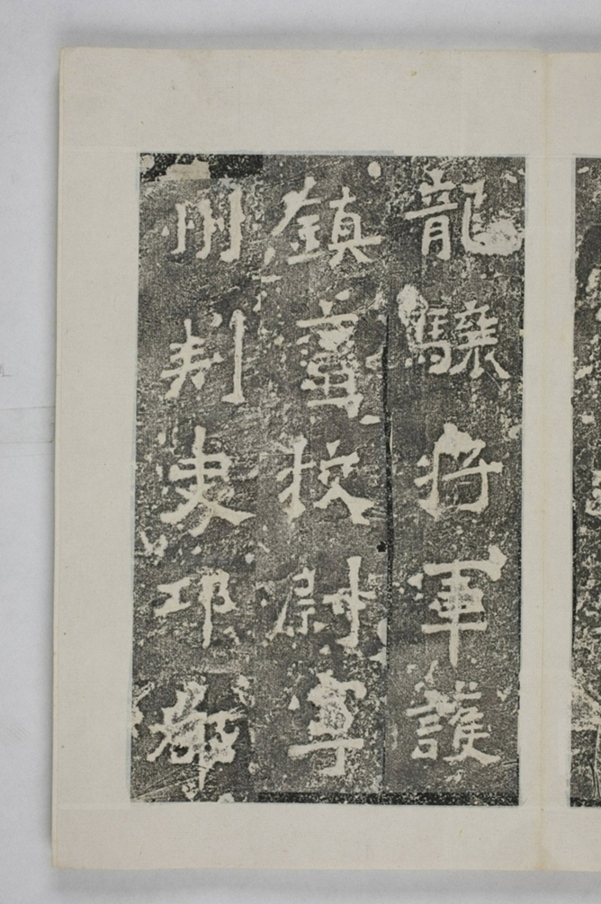 龍驤將軍護
鎮蠻校尉寧
州刺史邛都